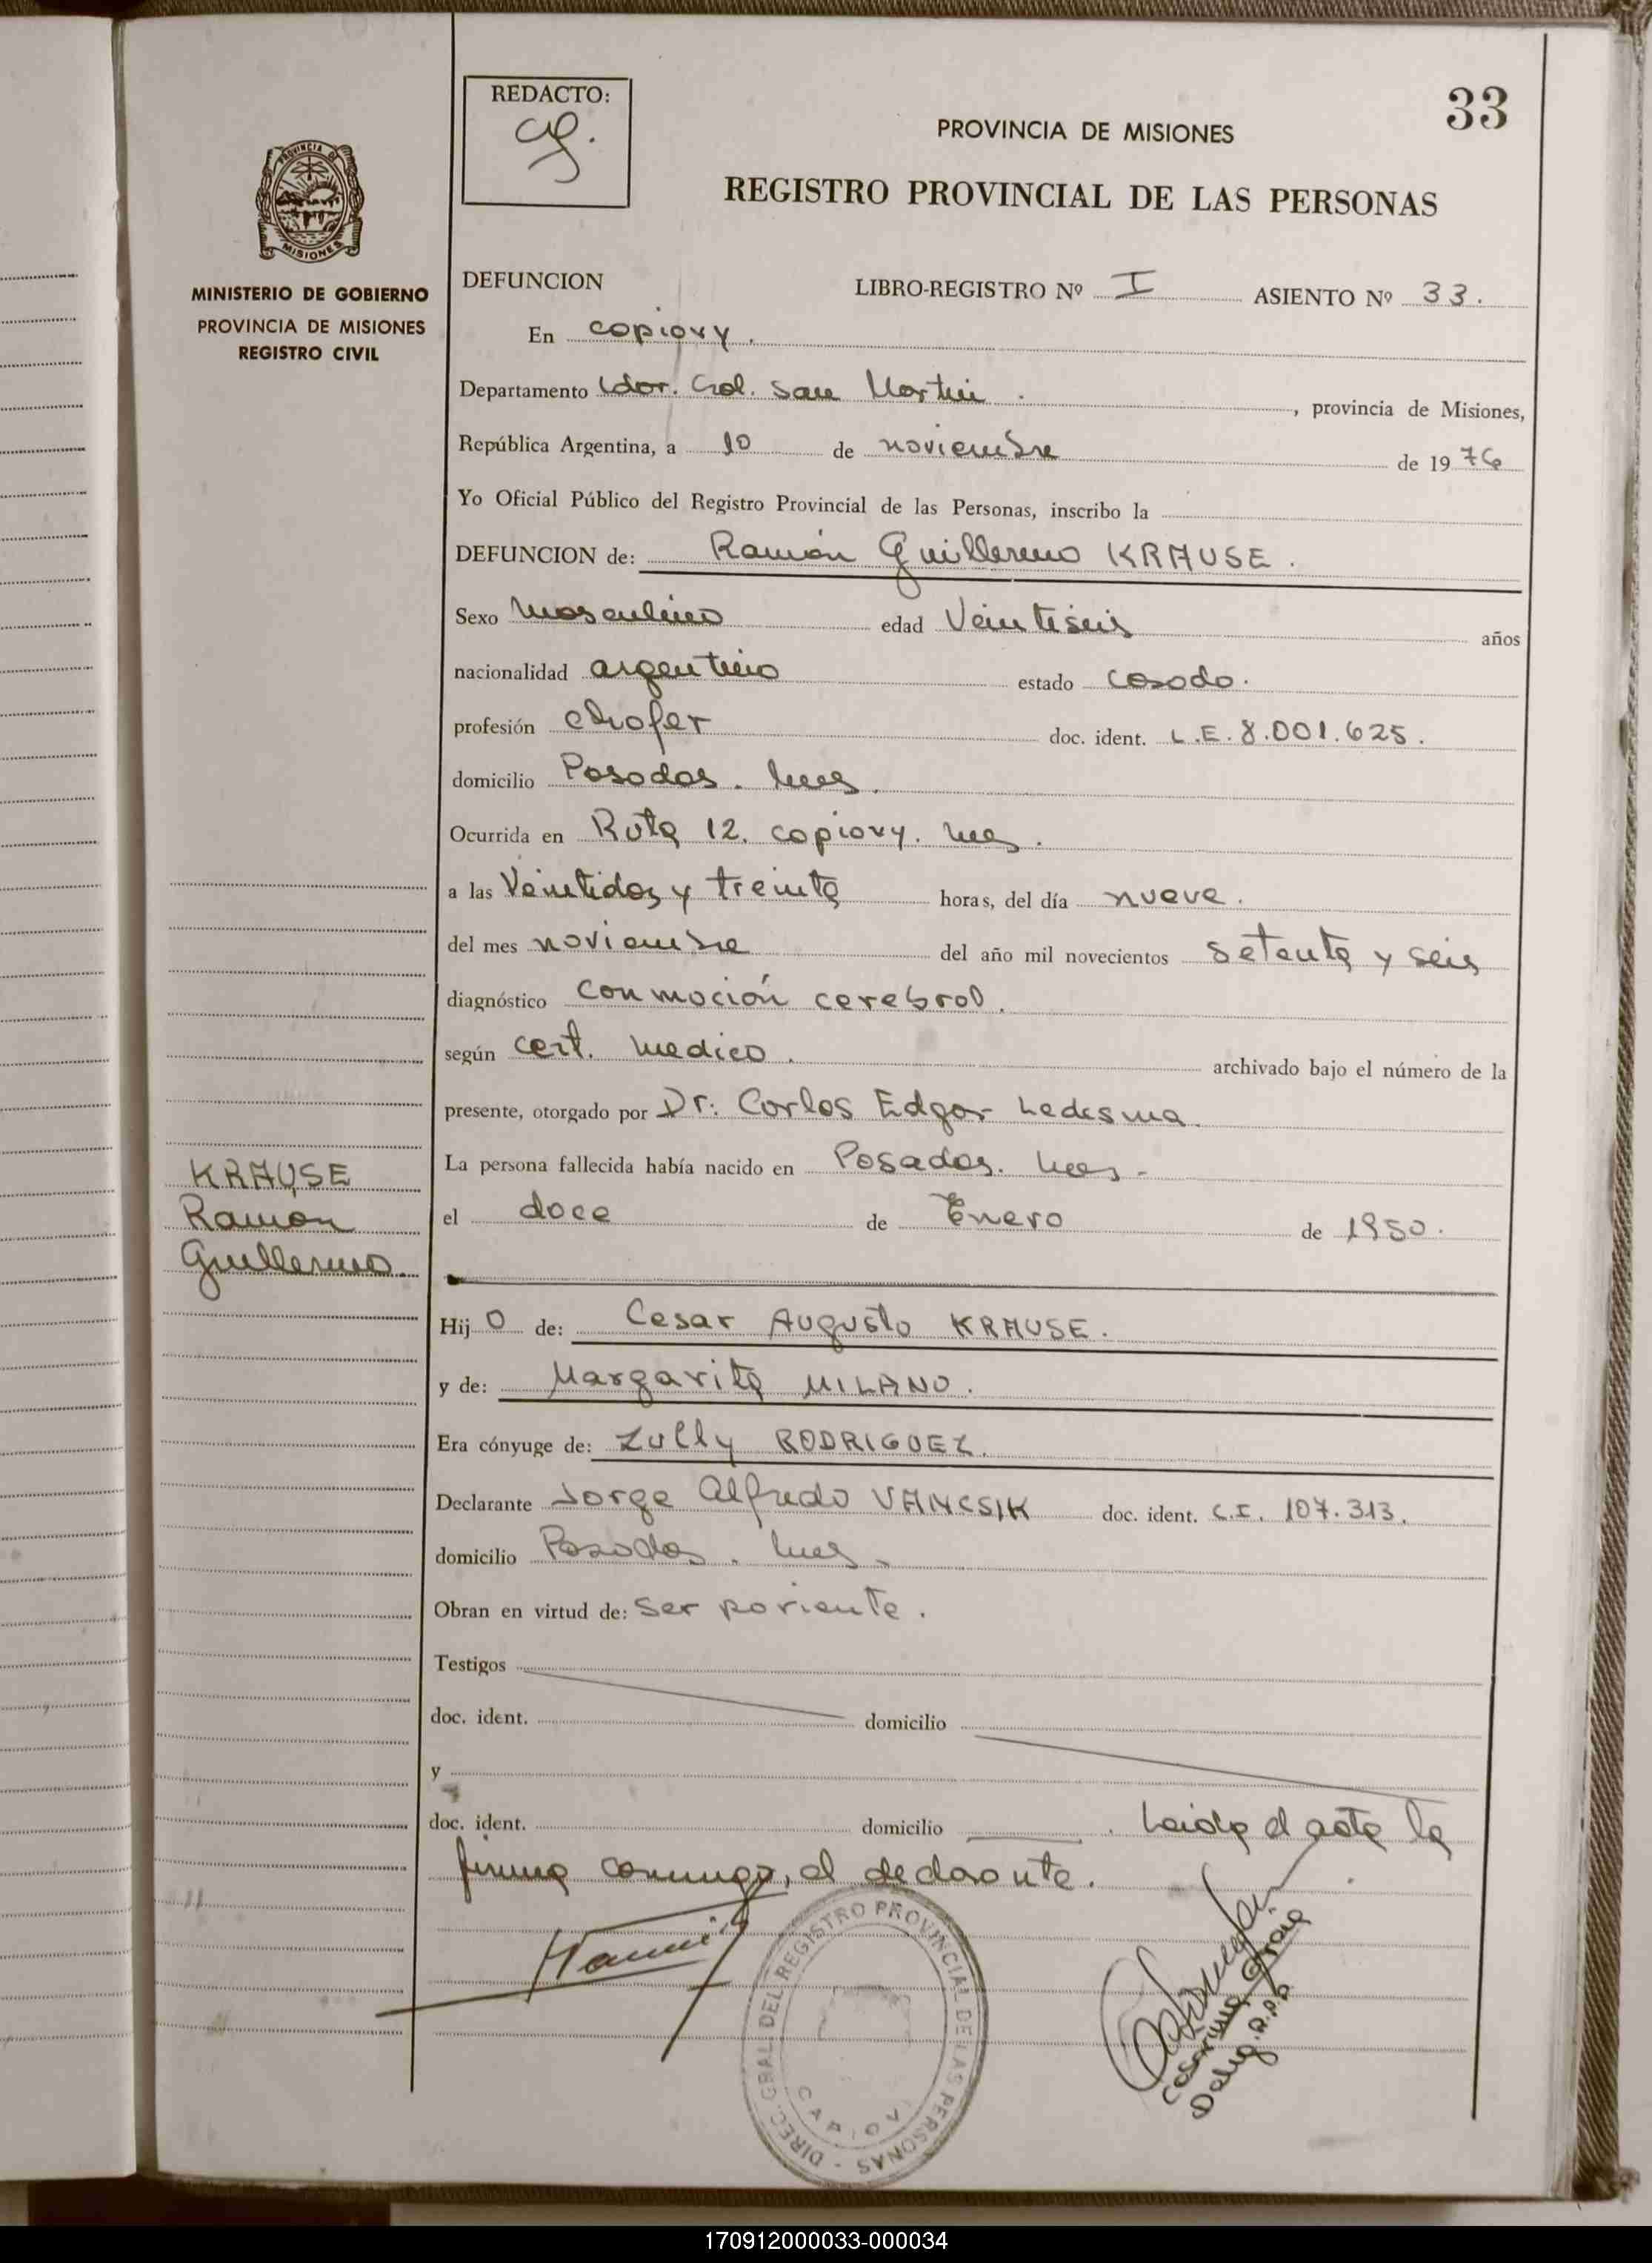 33
REDACTO:
PROVINCIA DE MISIONES
REGISTRO PROVINCIAL DE LAS PERSONAS
PROVINCIA DE
MISIONES
MINISTERIO DE GOBIERNO
PROVINCIA DE MISIONES
REGISTRO CIVIL
DEFUNCION LIBRO-REGISTRO Nº I ASIENTO Nº 33.
En capiovy.
Departamento Ldor. Gral. San Martin. , provincia de Misiones,
República Argentina, a 10 de noviembre de 1976
Yo Oficial Público del Registro Provincial de las Personas, inscribo la
DEFUNCION de: Ramón Guillermo KRAUSE.
Sexo masculino edad Veintiseis años
nacionalidad argentino estado casado.
profesión chofer doc. ident. L.E. 8.001.625.
domicilio Posadas. Mnes.
Ocurrida en Ruta 12. capiovy. Mnes.
a las Veintidos y treinta horas, del día nueve.
del mes noviembre del año mil novecientos setenta y seis
diagnóstico conmoción cerebral.
según cert. medico. archivado bajo el número de la
presente, otorgado por Dr. Carlos Edgar Ledesma.
La persona fallecida había nacido en Posadas. Mnes.-
el doce de Enero de 1950.
KRAUSE
Ramon
Guillermo.
Hijo de: Cesar Augusto KRAUSE.
y de: Margarita MILANO.
Era cónyuge de: Zully RODRIGUEZ.
Declarante Jorge Alfredo VANCSIK doc. ident. C.I. 107.313.
domicilio Posadas. Mnes.
Obran en virtud de: ser pariente.
Testigos
doc. ident. domicilio
y
doc. ident. domicilio . Leida el acta la
firma conmigo, el declarante.
DIREC. GRAL. DEL REGISTRO PROVINCIAL DE LAS PERSONAS -
CAPIOVI
170912000033-000034